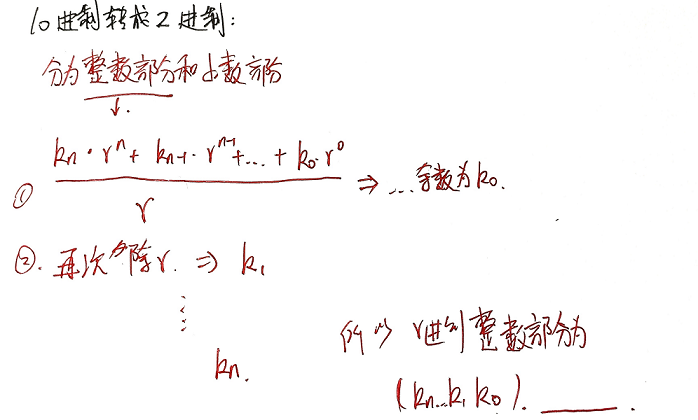 10进制转成2进制:
分为整数部分和小数部分
↓.
① (kn·rⁿ + kn-1·rⁿ⁻¹+...+ k0·r⁰) / r ⇒ ...余数为k0.
②. 再次除r. ⇒ k1
⋮
kn.
所以 r进制整数部分为
(kn...k1 k0).